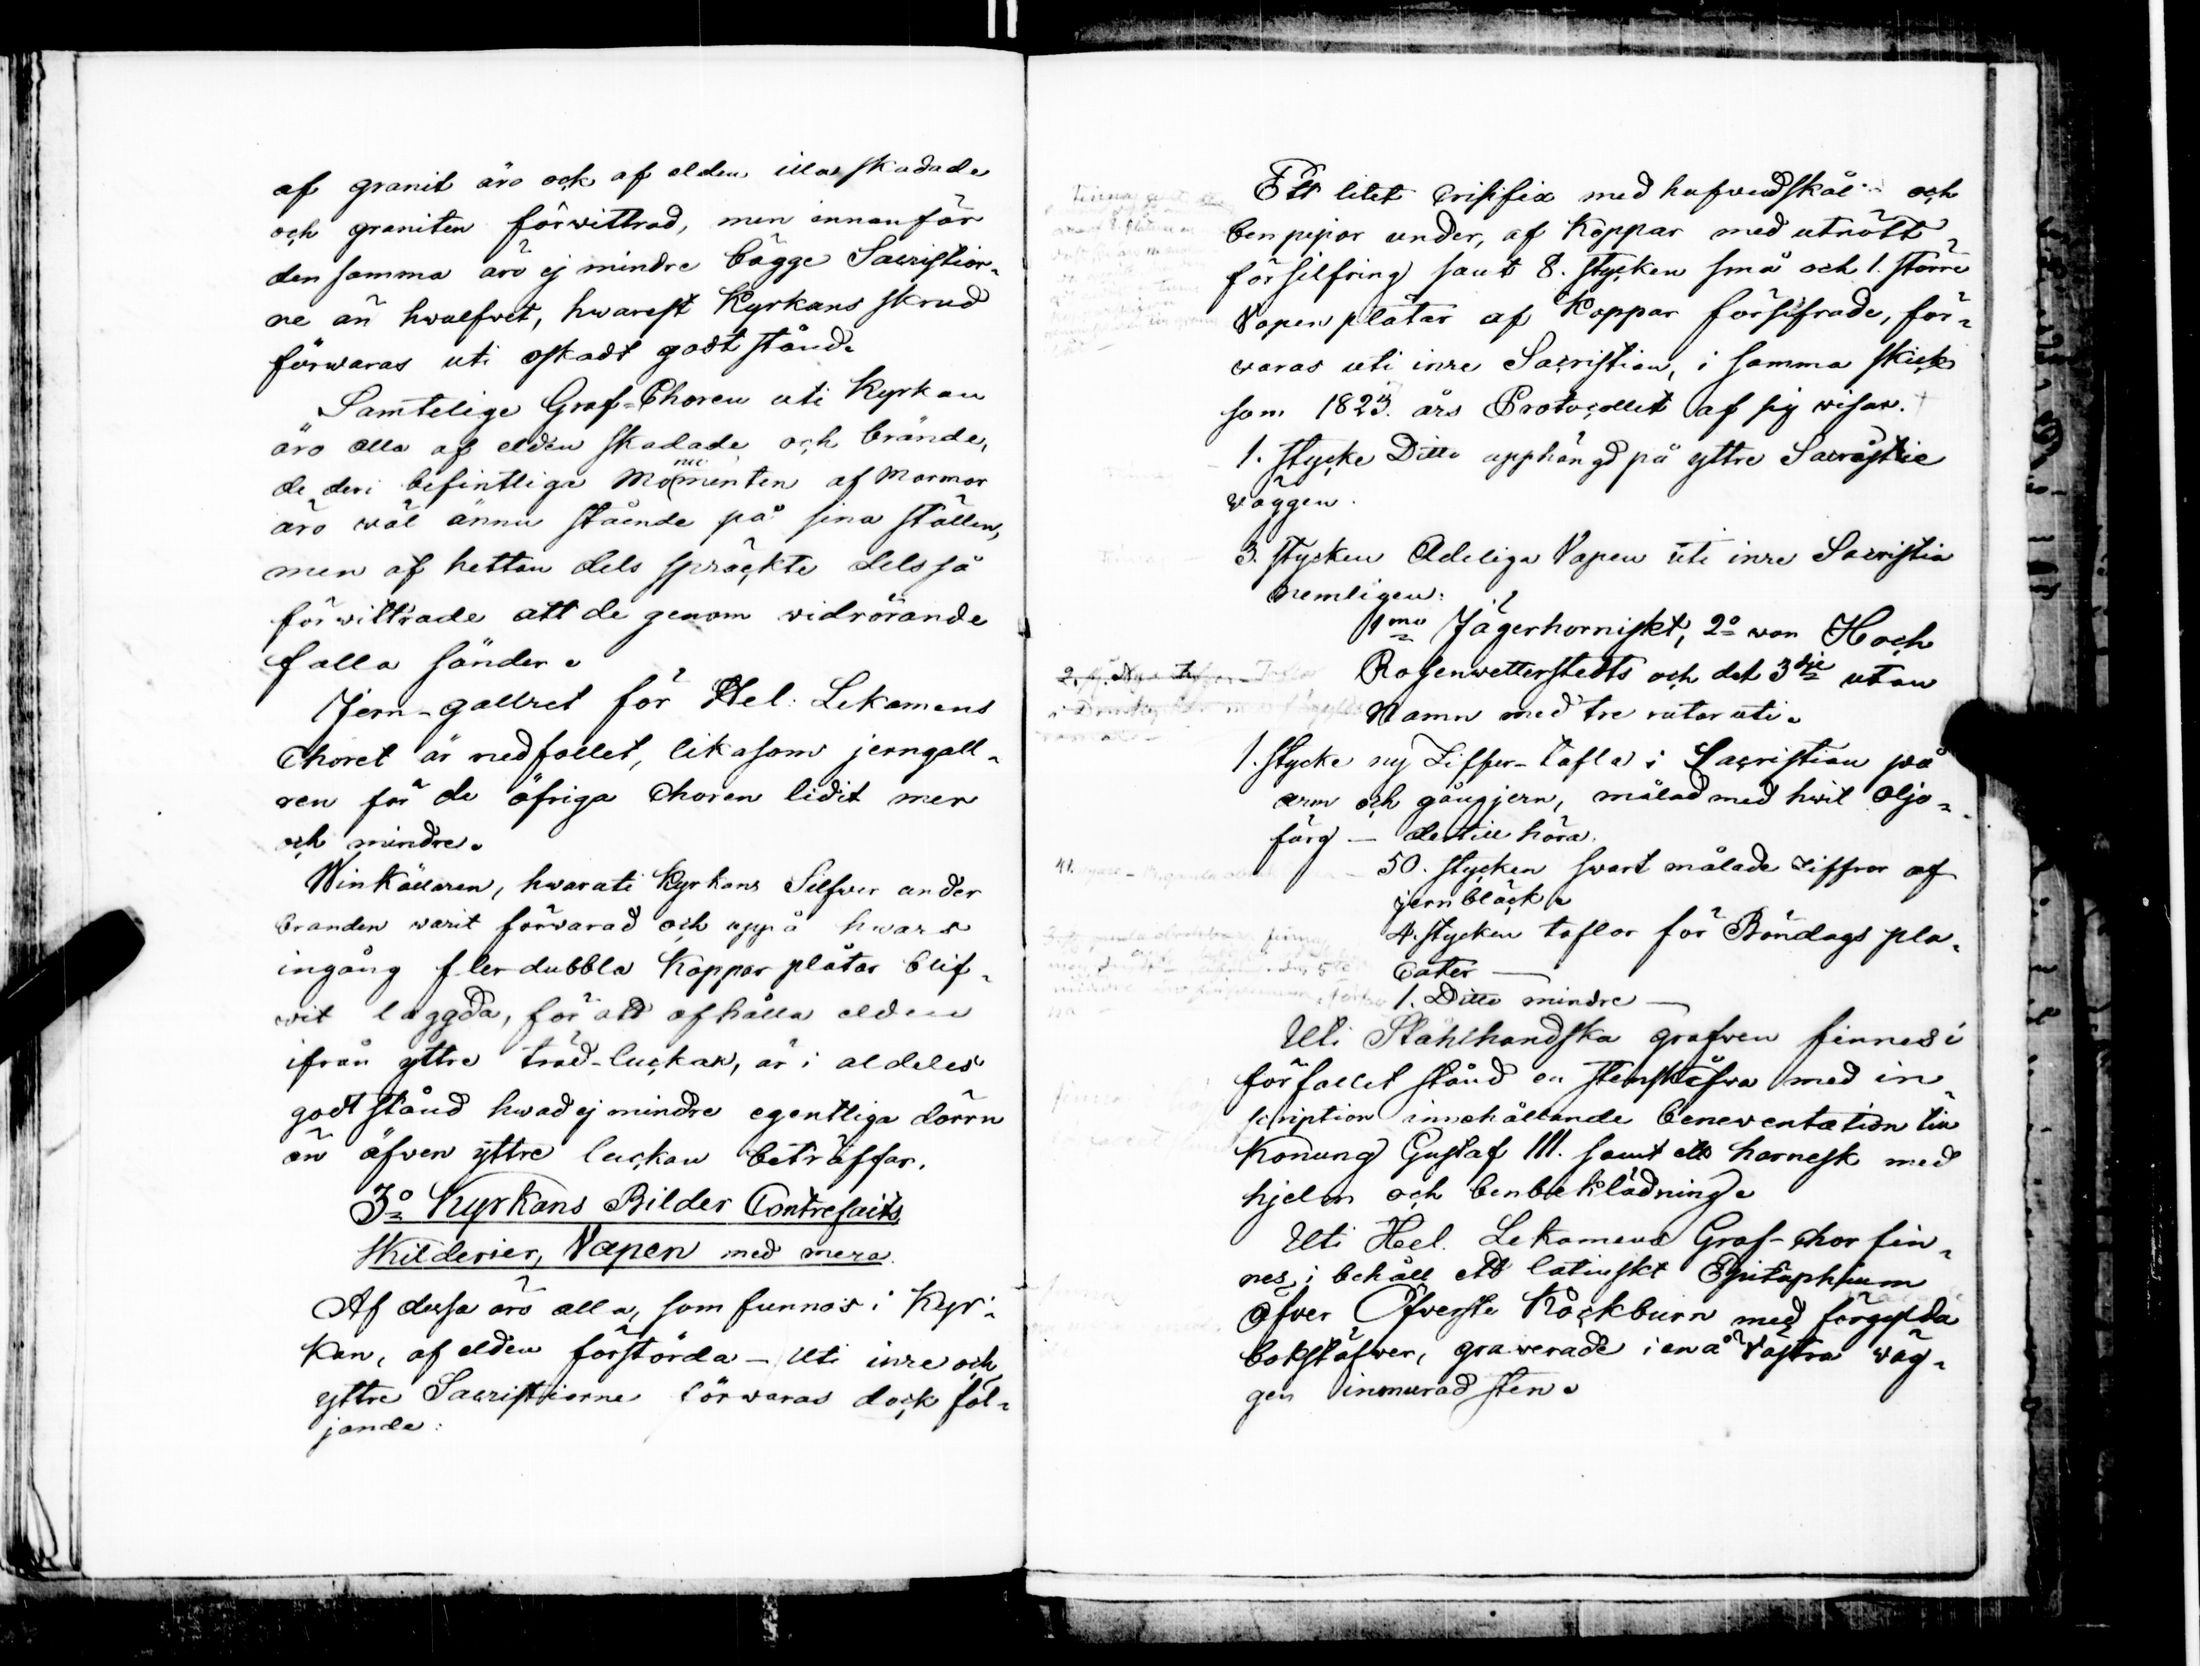 af granit äro ock af elden illa skadade
och graniten förwittrad, men innanför
den samma äro ej mindre bägge Sacristior-
ne än hwalfwet, hwarest Kyrkans skrud
förwaras uti oskadt godt stånd.
Samtelige Graf-Choren uti Kyrkan
äro alla af elden skadade och brände,
de deri befintliga Monumenten af Marmor
äro wäl ännu stående på sina ställen,
men af hettan dels spräckte dels så
förwittrade att de genom widrörande
falla sönder.
Jern-gallret för Hel. Lekamens
Choret är nedfallet, likasom jerngall-
ren för de öfriga Choren lidit mer
och mindre.
Winkällaren, hwaruti Kyrkans Silfwer under
branden warit förwarad och uppå hwars
ingång fler dubbla Koppar plåtar blif-
wit laggda, för att afhålla elden
ifrån yttre träd-luckan, är i aldeles
godt stånd hwad ej mindre egentliga dörrn
än äfwen yttre luckan beträffar.
3o Kyrkans Bilder Contrefaits
Skilderier, Vapen med mera.
Af dessa äro alla, som funnos i Kyr-
kan, af elden förstörda — Uti inre och
yttre Sacristiorne förwaras dock föl-
jande:
Ett litet Crisifix med hufwudskål och
benpipor under, af Koppar med utnött
försilfring samt 8. stycken små och 1. större
Vapen plåtar af Koppar försilfrade, för-
waras uti inre Sacristian, i samma skick
som 1823. års Protocollet af sig wisar.
1. Stycke Ditto upphängd på yttre Sacristie
wäggen.
3. stycken Adeliga Vapen uti inre Sacristia
nemligen:
1mo Jägerhorniskt, 2o von Hoch
Rosenwetterstedts och det 3dje utan
Namn med tre rutor uti.
1. Stycke ny Ziffer-tafla i Sacristian på
arm och gångjern, målad med hwit Oljo-
färg — dertill höra.
50. stycken swart målade Ziffror af
jernbläck.
4. stycken taflor för Böndags pla-
cater —
1. Ditto mindre —
Uti Stålhandska grafwen finnes i
förfallet stånd en stenskifwa med in-
scription innehållande benewentation till
Konung Gustaf III. samt ett harnesk med
hjelm och benbeklädning.
Uti Hel. Lekamens Graf-chor fin-
nes i behåll ett latinskt Epitaphium
öfver Öfverste Kockburn med förgylda
bokstäfwer, graverade i en å Västra wäg-
gen inmurad sten.